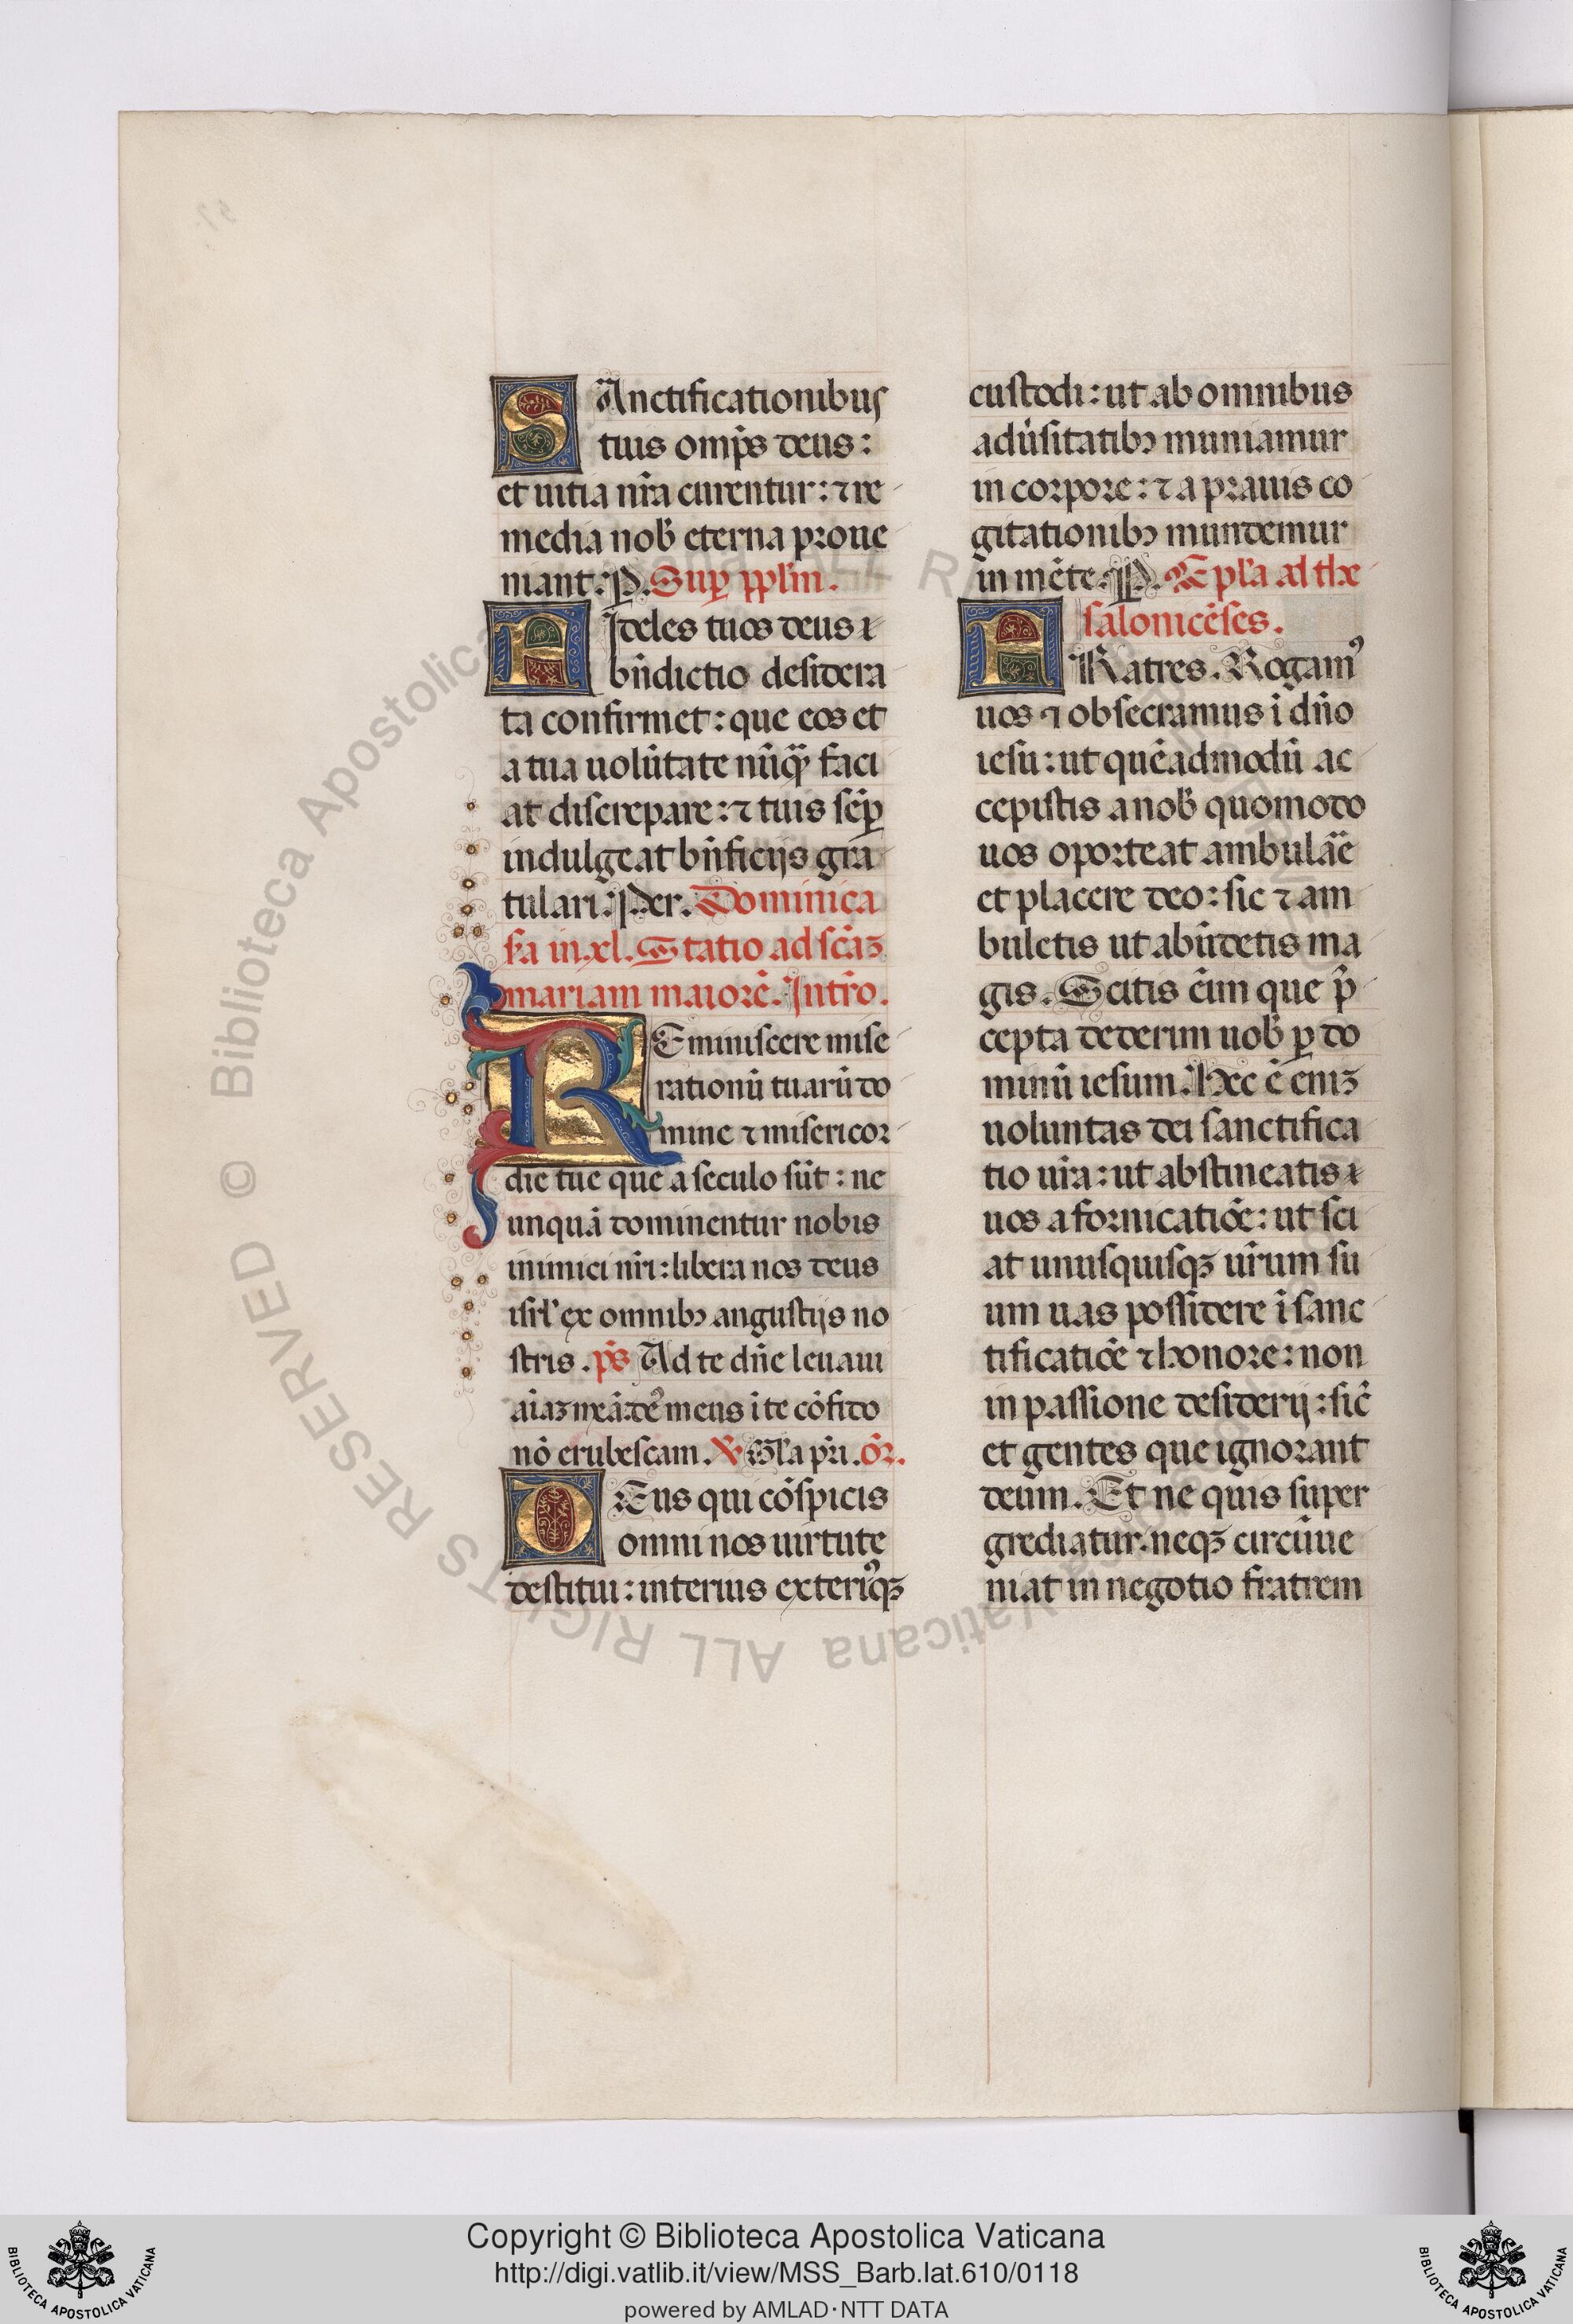 SAnctificationibus
tuis omp̄s deus:
et uitia nr̄a curentur: ⁊ re
media nob̄ eterna proue
niant: P. Sup̱ pp̄lm̄.
FIdeles tuos deus
bn̄dictio desidera
ta confirmet: que eos et
a tua uolūtate nūq̄ faci
at discrepare: ⁊ tuis sēp̱
indulgeat bn̄ficijs gra
tulari. Per. Dominica
s̄a in xl. Statio ad sc̄aꝫ
mariam maiorē. Intro.
REminiscere mise
rationū tuarū do
mine ⁊ misericor
die tue que a seculo sūt: ne
unquā dominentur nobis
inimici nr̄i: libera nos deus
isrl̄ ex omnibꝰ angustijs no
stris. p̄s Ad te dn̄e leuaui
aīaꝫ meā: deꝰ meus ī te cōfido
nō erubescam. ℣ Gl̄a pr̄i. Or̄.
DEus qui cōspicis
omni nos uirtute
destitui: interius exteriꝰqꝫ
custodi: ut ab omnibus
adūsitatibꝰ muniamur
in corpore: ⁊ a prauis co
gitationibꝰ mundemur
in mēte. P. Epl̄a ad the
salonicēses.
FRatres. Rogamꝰ
uos ⁊ obsecramus ī dn̄o
iesu: ut quēadmodū ac
cepistis a nob̄ quomodo
uos oporteat ambulāe
et placere deo: sic ⁊ am
buletis ut abūdetis ma
gis. Scitis eīm que p̄
cepta dederim uob̄ ꝑ do
minū iesum. Hec ē enīꝫ
uoluntas dei sanctifica
tio ur̄a: ut abstineatis
uos a fornicatiōe: ut sci
at unusquisqꝫ ur̄um su
um uas possidere ī sanc
tificatiōe ⁊ honore: non
in passione desiderij: sic̄
et gentes que ignorant
deum. Et ne quis super
grediatur: neqꝫ circūue
niat in negotio fratrem
© Biblioteca Apostolica Vaticana ALL RIGHTS RESERVED
Copyright © Biblioteca Apostolica Vaticana
http://digi.vatlib.it/view/MSS_Barb.lat.610/0118
powered by AMLAD·NTT DATA
BIBLIOTECA APOSTOLICA VATICANA
BIBLIOTECA APOSTOLICA VATICANA